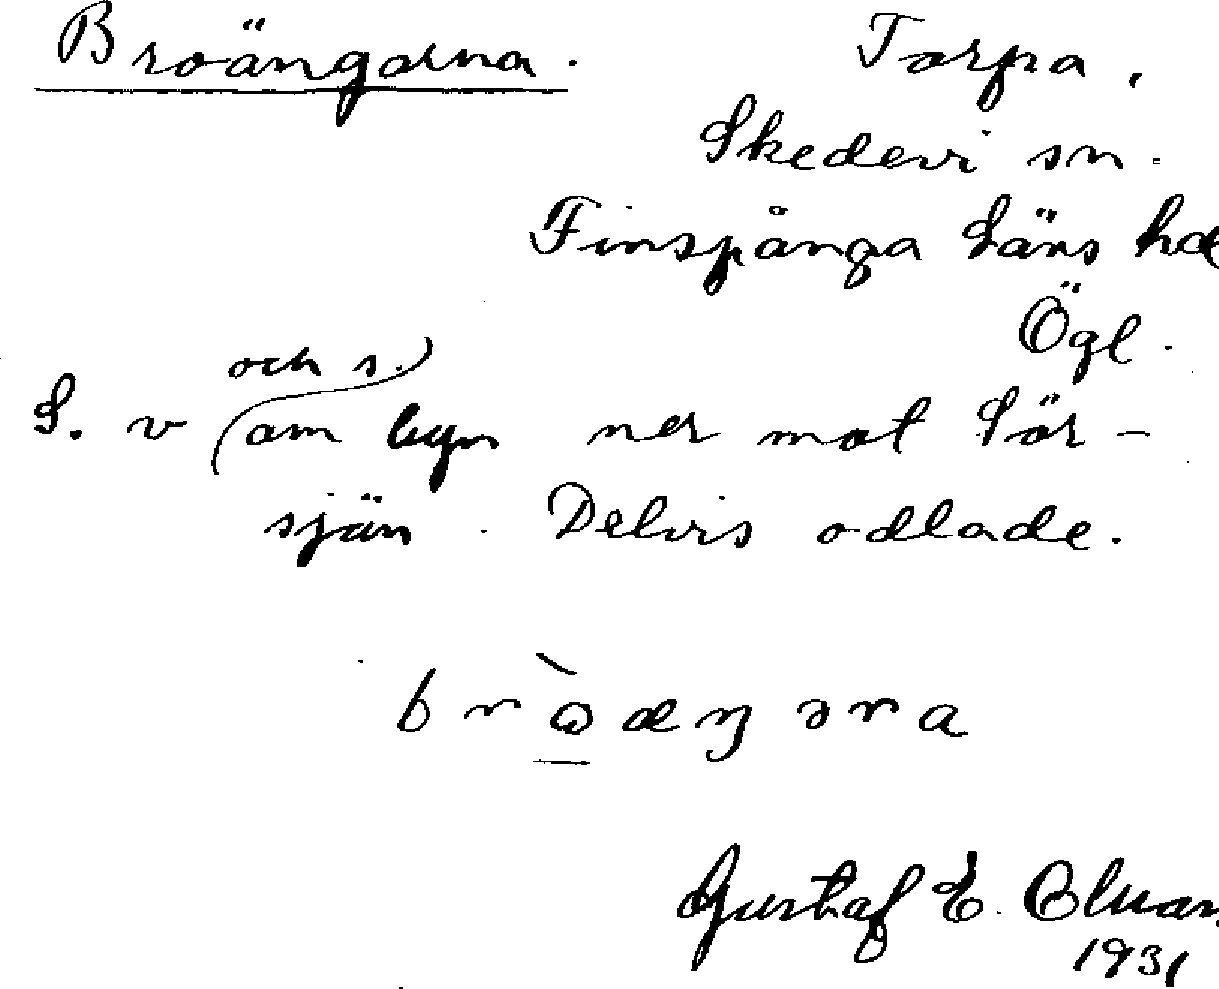 Broängarna. Torpa,
Skedevi sn.
Finspånga läns hd
Ögl.
och s.
S. v om byn ner mot Sör-
sjön. Delvis odlade.
brὼæŋəra
Gustaf E.
1931